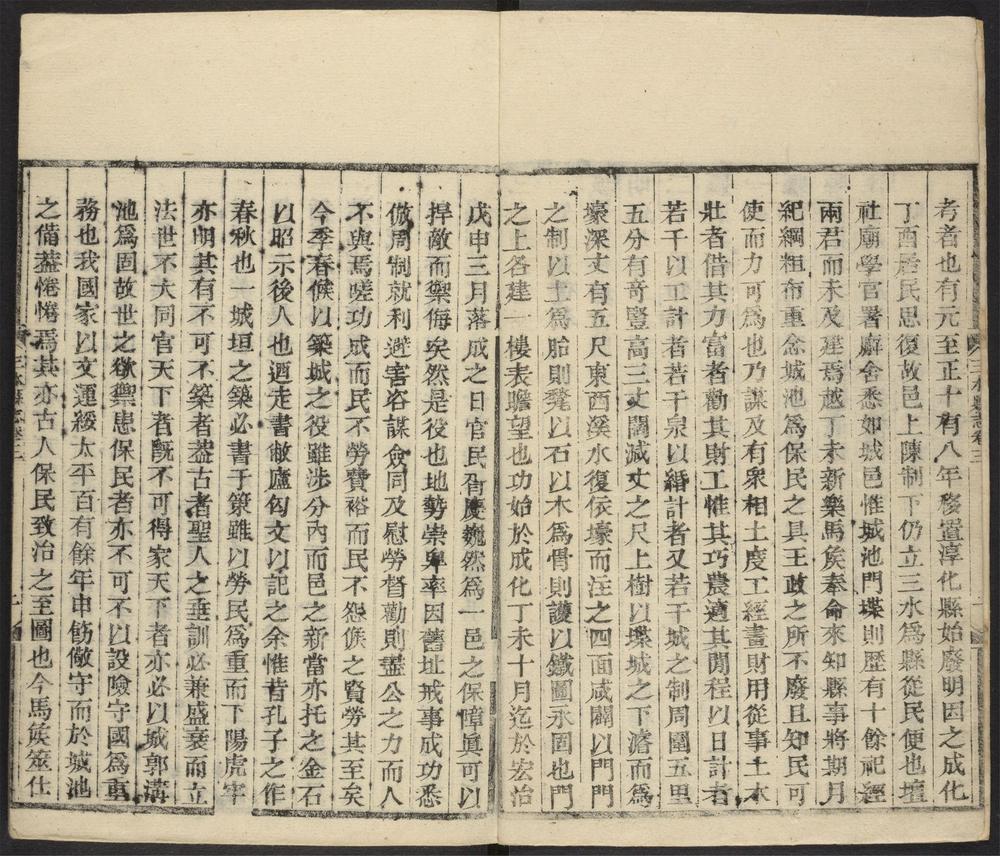 考者也有元至正十有八年移置淳化縣始廢明因之成化
丁酉居民思復故邑上陳制下仍立三水爲縣從民便也壇
社廟學官署廨舍悉如城邑惟城池門堞則歷有十餘祀經
兩君而未及建焉越丁未新樂馬矦奉命來知縣事將期月
紀綱粗布重念城池爲保民之具王政之所不廢且知民可
使而力可爲也乃謀及有衆相土度工經畫財用從事土木
壯者借其力富者勸其財工惟其巧農適其閒程以日計者
若干以工計者若干泉以緡計者又若干城之制周圍五里
五分有奇豎高三丈闊减丈之尺上樹以堞城之下濬而爲
壕深丈有五尺東西溪水復依壕而注之四面咸闢以門門
之制以土爲胎則甃以石以木爲骨則護以鐵圖永固也門
之上各建一樓表瞻望也功始於成化丁未十月迄於宏治
戊申三月落成之日官民胥慶巍然爲一邑之保障眞可以
捍敵而禦侮矣然是役也地勢崇卑率因舊址戒事成功悉
倣周制就利避害咨謀僉同及慰勞督勸則盡公之力而人
不與焉嗟功成而民不勞費裕而民不怨矦之賢勞其至矣
今季春矦以築城之役雖涉分內而邑之新當亦托之金石
以昭示後人也迺走書敝廬匃文以記之余惟昔孔子之作
春秋也一城垣之築必書于策雖以勞民爲重而下陽虎牢
亦明其有不可不築者葢古者聖人之垂訓必兼盛衰而立
法世不大同官天下者旣不可得家天下者亦必以城郭溝
池爲固故世之欲禦患保民者亦不可不以設險守國爲重
務也我國家以文運綏太平百有餘年申飭儆守而於城池
之備葢惓惓焉其亦古人保民致治之至圖也今馬矦筮仕
三水縣志卷三